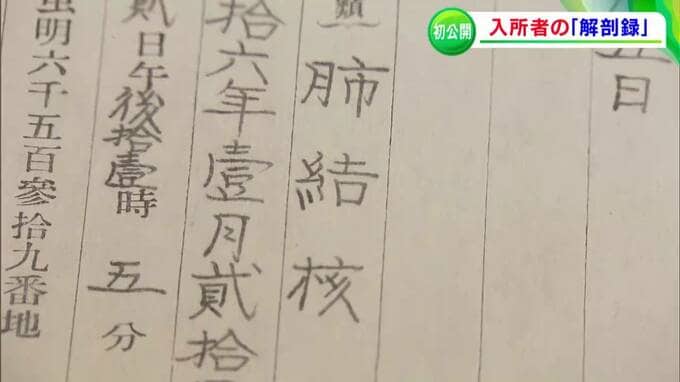 初公開
入所者の「解剖録」
日
肺結核
拾六年壹月貳拾
日午後拾壹時五分
虫明六千五百參拾九番地